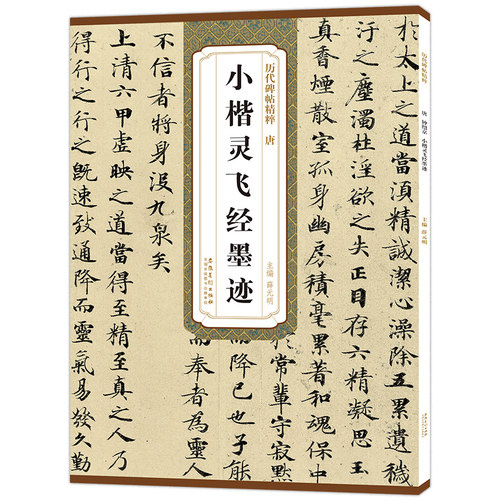 历代碑帖精粹
唐 钟绍京 小楷灵飞经墨迹
主编 薛元明
於太上之道當須精誠潔心澡除五累遺穢
汙之塵濁杜淫欲之失正目存六精凝思玉
真香煙散室孤身幽房積毫累著和魂保中
於常輩守寂默
而降已也子
而奉者為靈人
历代碑帖精粹 唐
小楷灵飞经墨迹
主编 薛元明
不信者將身沒九泉矣
上清六甲虛映之道當得至精至真之人乃
得行之行之既速致通降而靈氣易發久勤